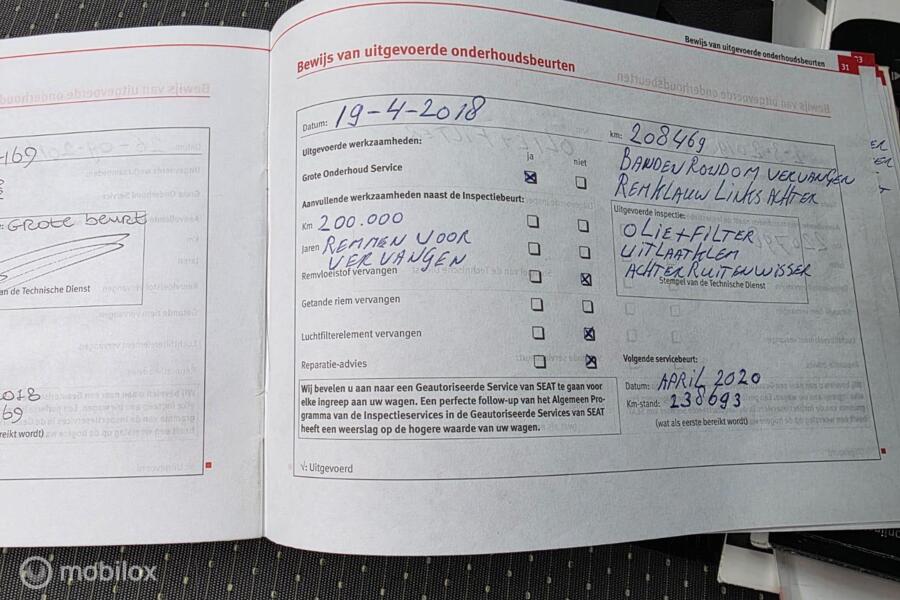 Bewijs van uitgevoerde onderhoudsbeurten
31
33
Bewijs van uitgevoerde onderhoudsbeurten
Datum: 19-4-2018
km: 208469
Uitgevoerde werkzaamheden:
ja niet
BANDEN RONDOM VERVANGEN
Grote Onderhoud Service
REMKLAUW LINKS ACHTER
Aanvullende werkzaamheden naast de Inspectiebeurt:
Uitgevoerde inspectie:
Km 200.000
OLIE+FILTER
Jaren REMMEN VOOR
UITLAATKLEM
VERVANGEN
ACHTERRUITENWISSER
Remvloeistof vervangen
Stempel van de Technische Dienst
Getande riem vervangen
Luchtfilterelement vervangen
Reparatie-advies
Volgende servicebeurt:
Datum: APRIL 2020
Km-stand: 238693
(wat als eerste bereikt wordt)
Wij bevelen u aan naar een Geautoriseerde Service van SEAT te gaan voor
elke ingreep aan uw wagen. Een perfecte follow-up van het Algemeen Pro-
gramma van de Inspectieservices in de Geautoriseerde Services van SEAT
heeft een weerslag op de hogere waarde van uw wagen.
√: Uitgevoerd
169
GROTE beurt
an de Technische Dienst
018
69
ereikt wordt)
mobilox